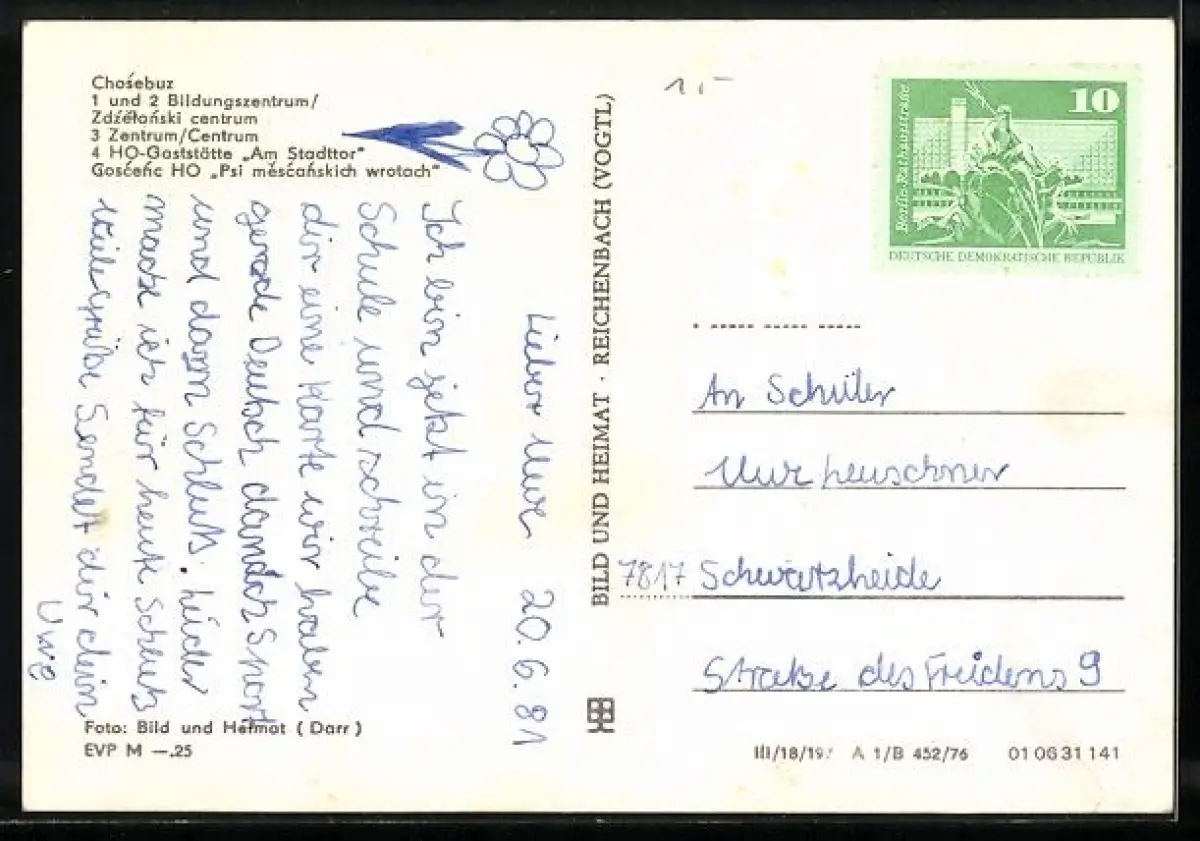 Chośebuz
1 und 2 Bildungszentrum/
Zdźěłoński centrum
3 Zentrum/Centrum
4 HO-Gaststätte „Am Stadttor"
Gosćeńc HO „Psi měsćańskich wrotach"
Lieber Uwe 20.6.81
Ich bin jetzt in der
Schule und schreibe
dir eine Karte wir haben
gerade Deutsch danach Sport
und dann Schluß. Leider
mache ich für heute Schluß
viele Grüße Sendet dir dein
Uwe
Foto: Bild und Heimat (Darr)
EVP M —.25
BILD UND HEIMAT · REICHENBACH (VOGTL)
1,-
10
Berlin-Rathausstraße
DEUTSCHE DEMOKRATISCHE REPUBLIK
An Schüler
Uwe heuschner
7817 Schwartzheide
Straße des Freidens 9
III/18/197 A 1/B 452/76 01 06 31 141